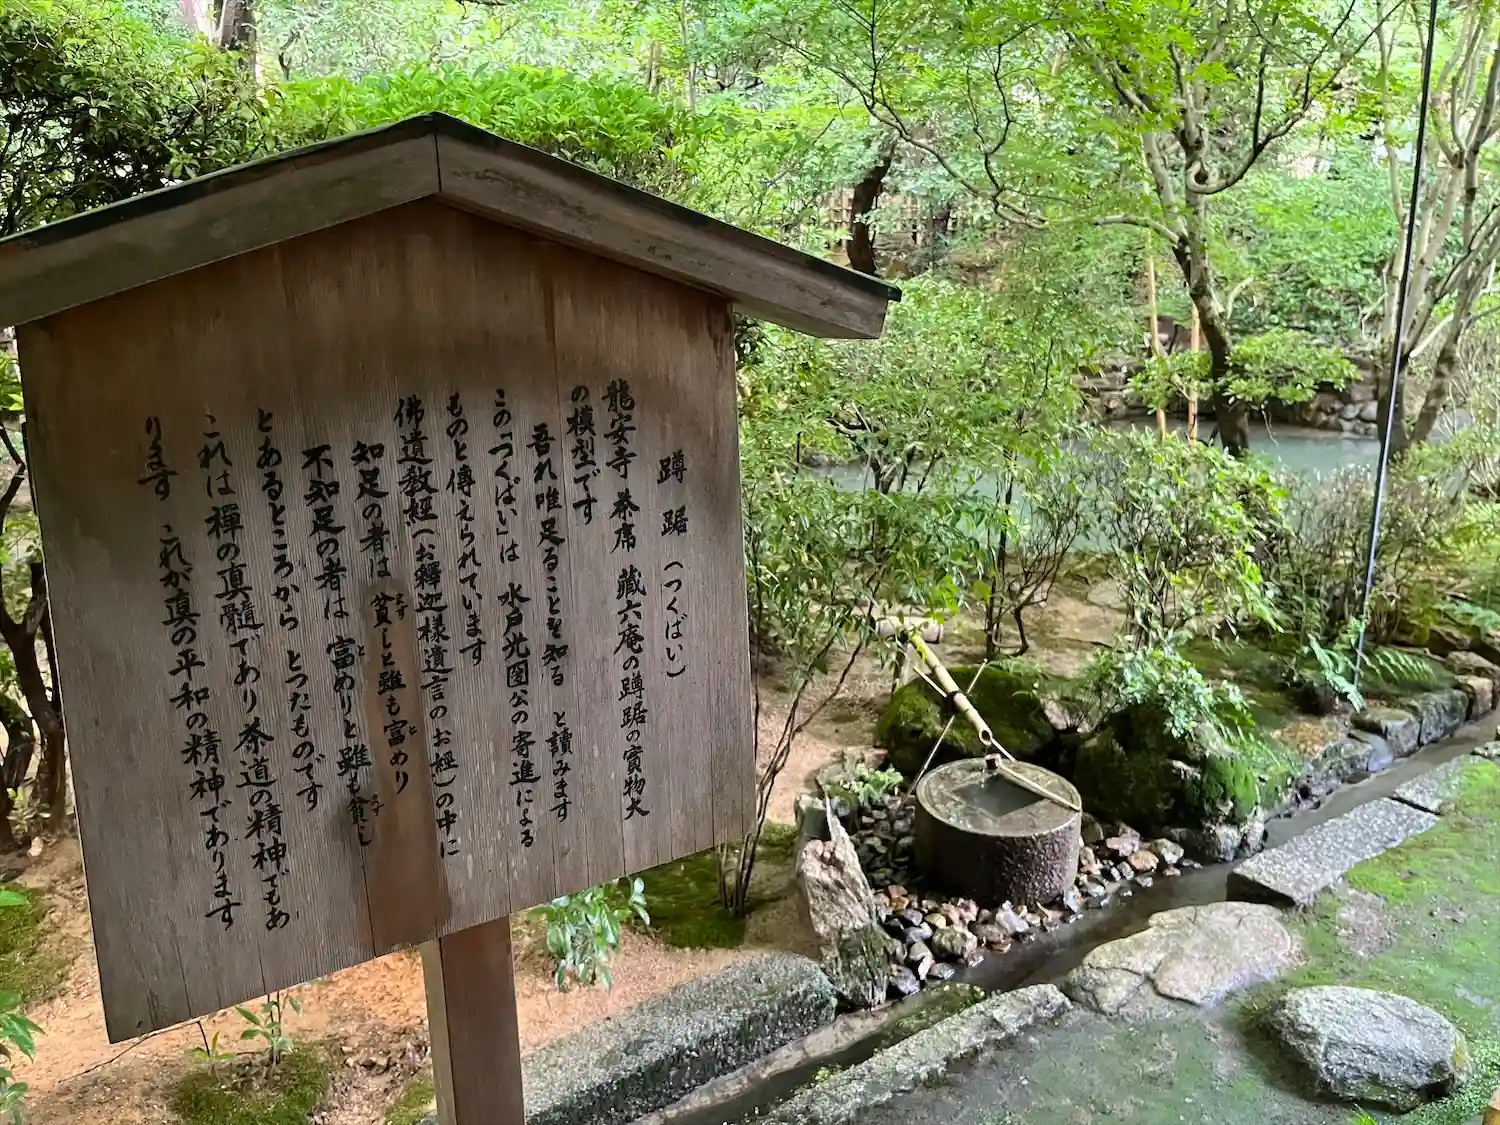 蹲踞（つくばい）
龍安寺 茶席 藏六庵の蹲踞の實物大
の模型です
吾れ唯足ることを知る と讀みます
この「つくばい」は 水戸光圀公の寄進による
ものと傳えられています
佛遺教經（お釋迦様遺言のお經）の中に
知足の者は 貧しと雖も富めり
まず と
不知足の者は 富めりと雖も貧し
と まず
とあるところから とつたものです
これは禪の真髓であり茶道の精神でもあ
ります これが真の平和の精神であります